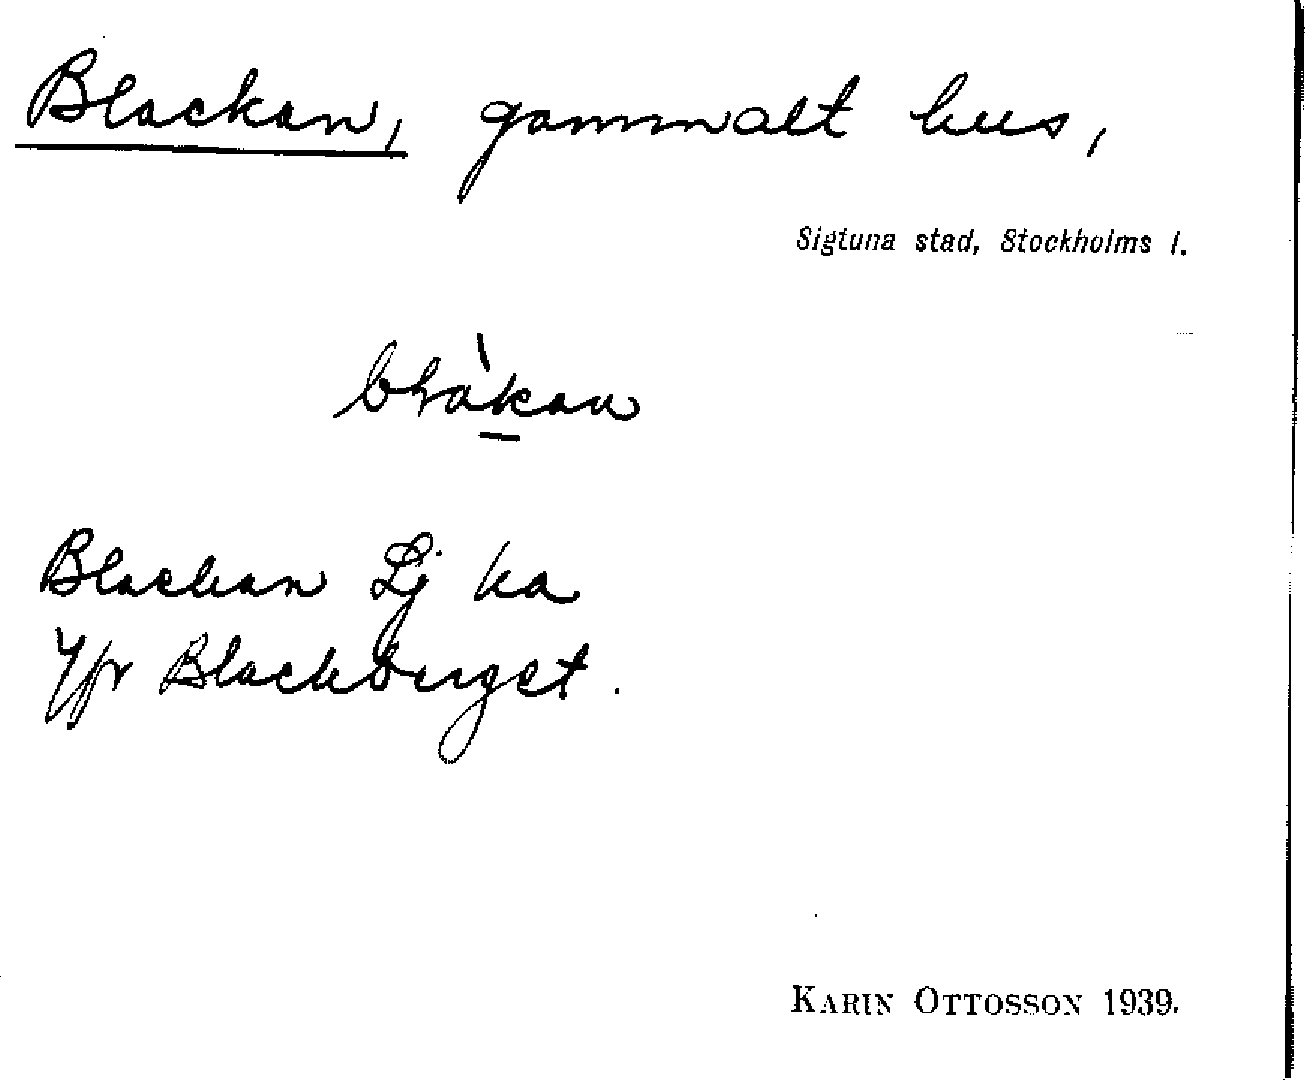 Blackan, gammalt hus,
Sigtuna stad, Stockholms l.
Blackan Lj ka
Jfr Blackberget.
KARIN OTTOSSON 1939.